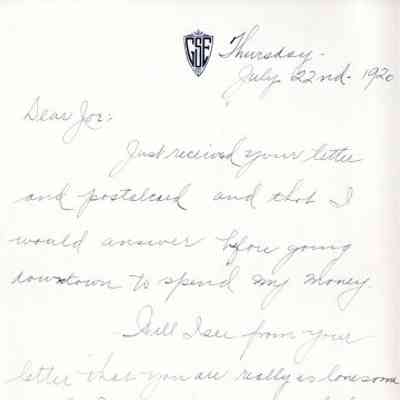 GSE
Thursday-
July 22nd- 1920
Dear Joe:
Just received your letter
and postalcard and thot I
would answer before going
downtown to spend my money
Well I see from your
letter that you are really as lonesome